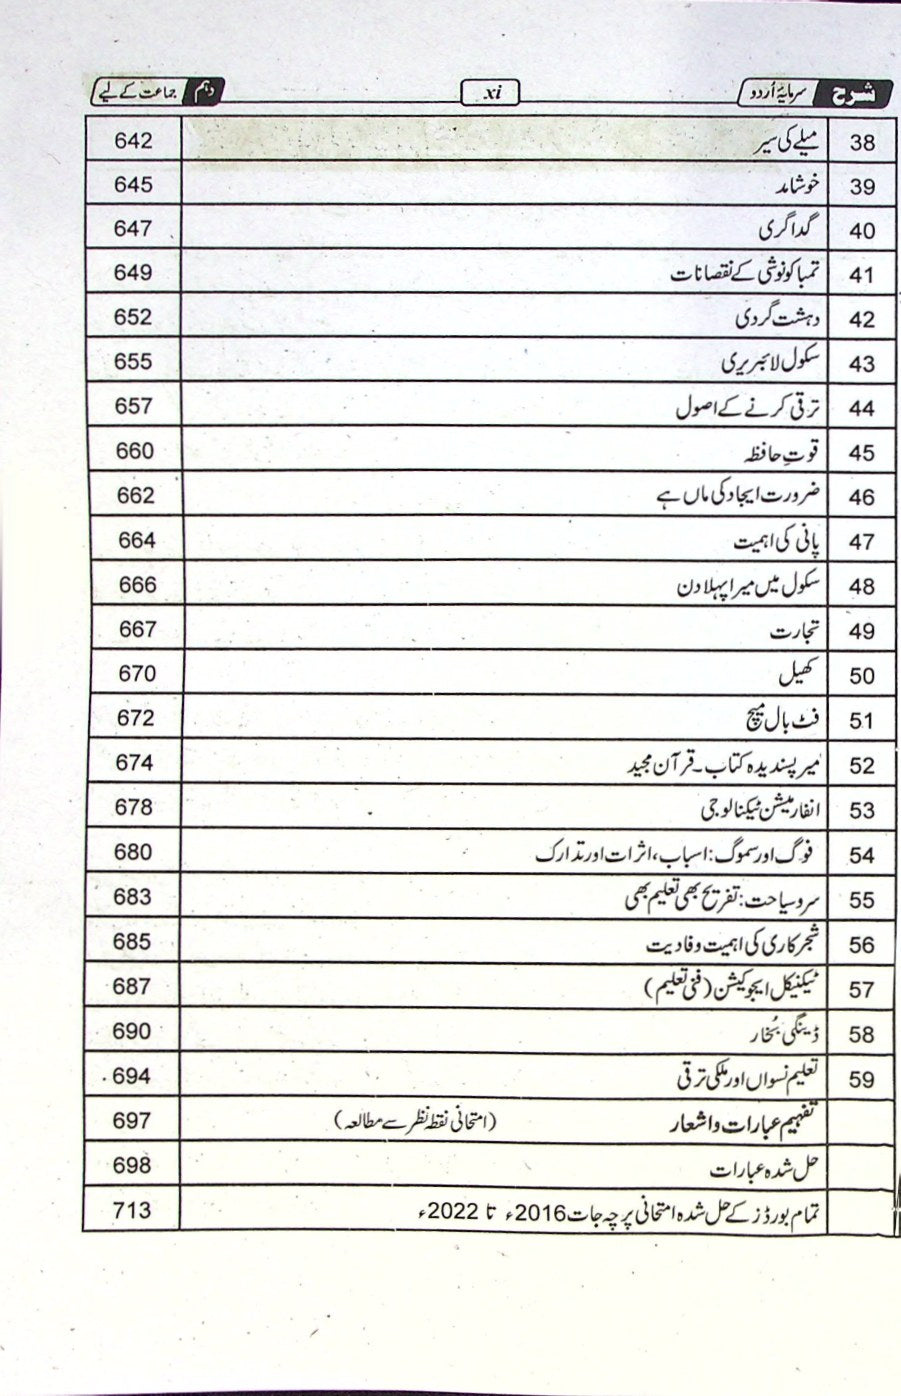 شرح سرمایۂ اُردو xi دہم جماعت کے لیے
38 میلے کی سیر 642
39 خوشامد 645
40 گداگری 647
41 تمباکو نوشی کے نقصانات 649
42 دہشت گردی 652
43 سکول لائبریری 655
44 ترقی کرنے کے اصول 657
45 قوتِ حافظہ 660
46 ضرورت ایجاد کی ماں ہے 662
47 پانی کی اہمیت 664
48 سکول میں میرا پہلا دن 666
49 تجارت 667
50 کھیل 670
51 فٹ بال میچ 672
52 میر پسندیدہ کتاب۔ قرآن مجید 674
53 انفارمیشن ٹیکنالوجی 678
54 فوگ اور سموگ: اسباب، اثرات اور تدارک 680
55 سر و سیاحت: تفریح بھی تعلیم بھی 683
56 شجر کاری کی اہمیت و فادیت 685
57 ٹیکنیکل ایجوکیشن (فنی تعلیم) 687
58 ڈینگی بُخار 690
59 تعلیم نسواں اور ملکی ترقی 694
تفہیم عبارات و اشعار (امتحانی نقطۂ نظر سے مطالعہ) 697
حل شدہ عبارات 698
تمام بورڈز کے حل شدہ امتحانی پرچہ جات 2016ء تا 2022ء 713